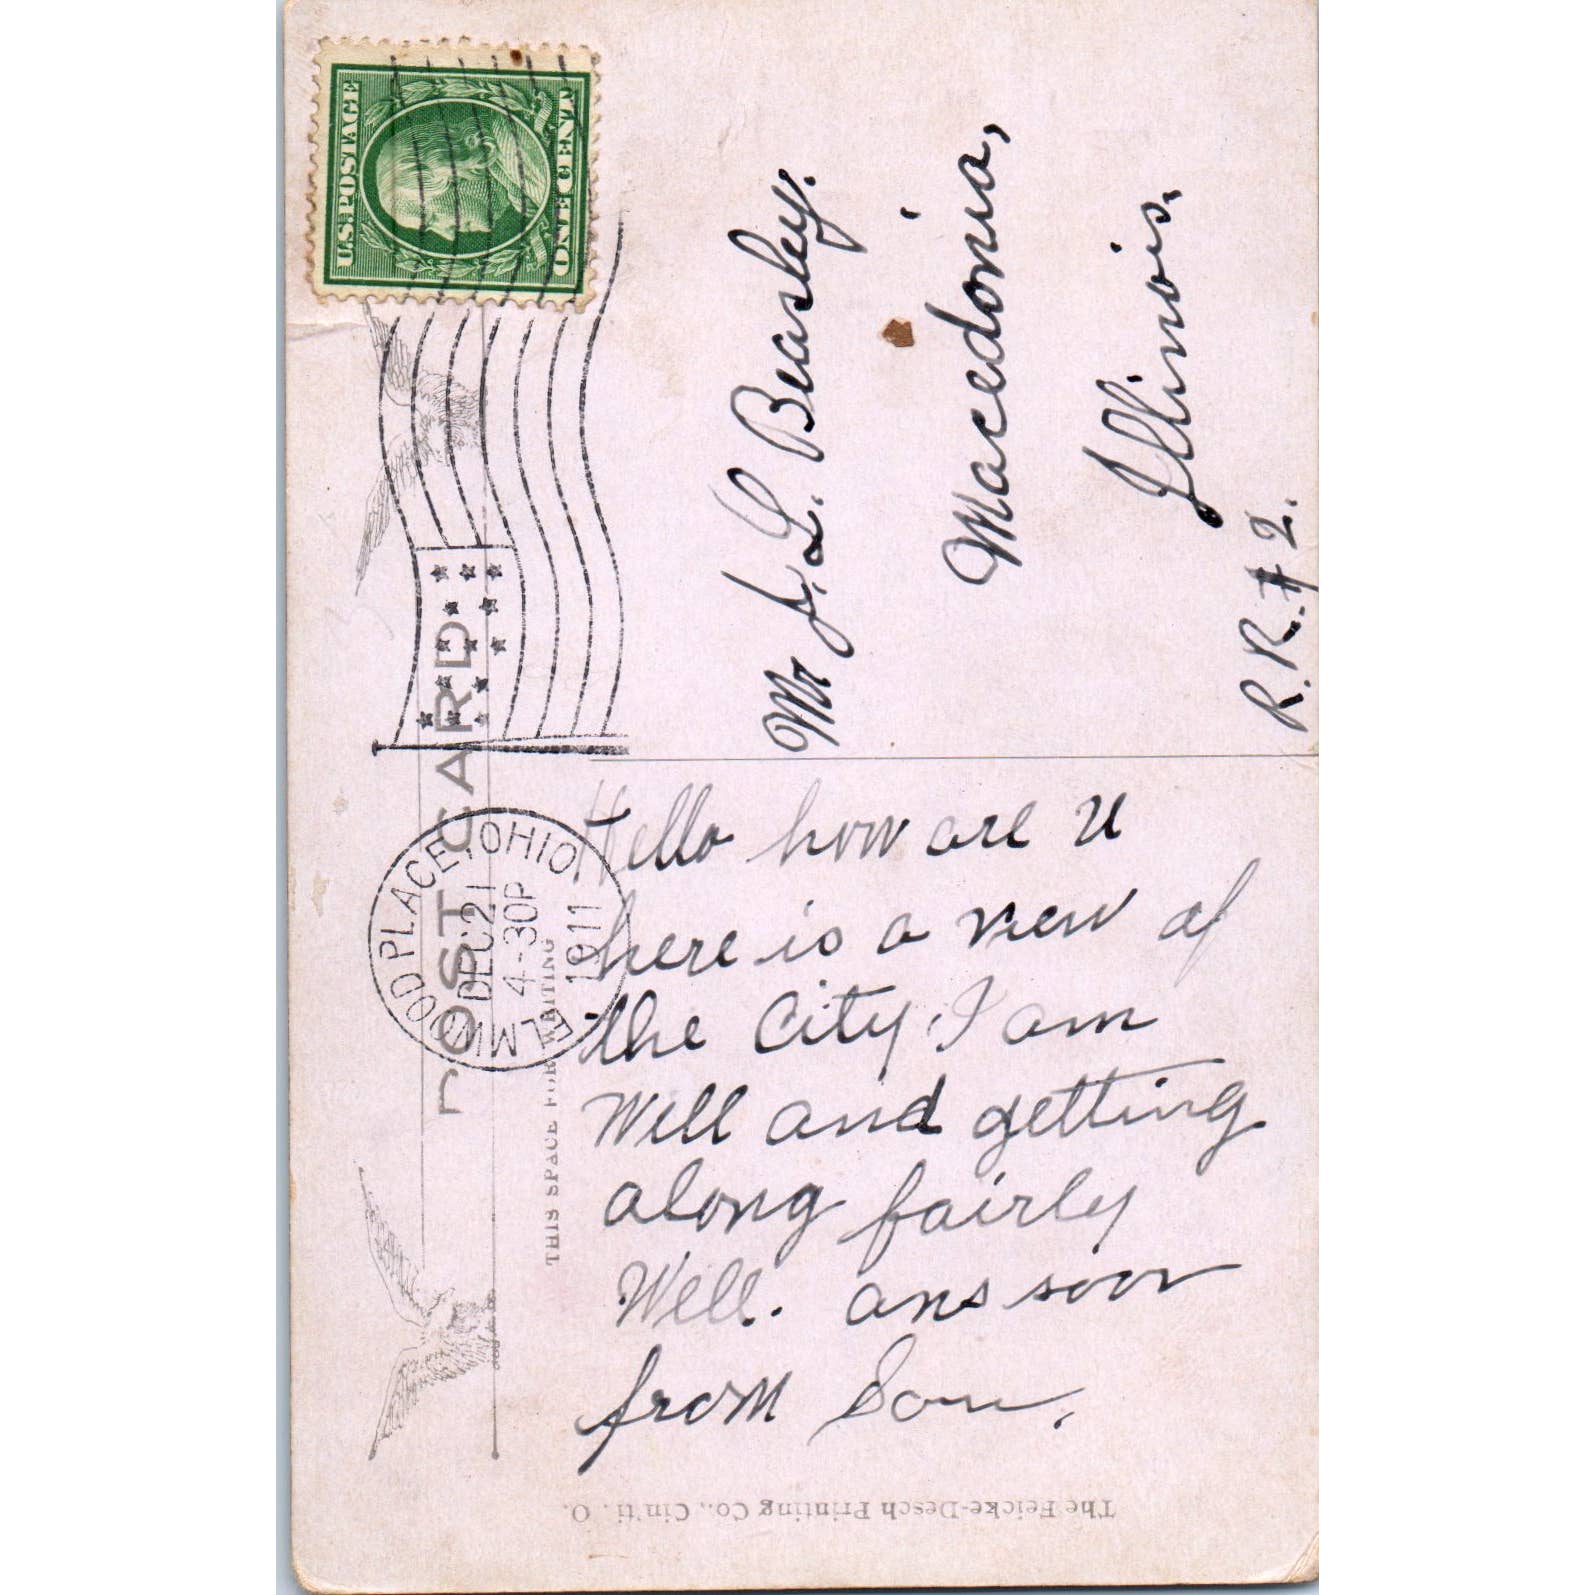 U.S. POSTAGE
ONE CENT
POST CARD
ELMWOOD PLACE, OHIO.
DEC 21
4-30P
1911
THIS SPACE FOR WRITING
Hello how are U
here is a view of
the City, I am
Well and getting
along fairly
Well. ans soon
from Son.
Mr J. L. Beasley.
Macedonia,
Illinois.
R.R. # 2.
The Feicke-Desch Printing Co., Cin'ti. O.